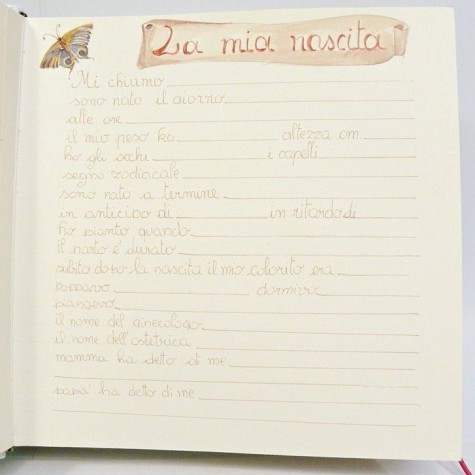 La mia nascita
Mi chiamo
sono nato il giorno
alle ore
il mio peso kg altezza cm.
ho gli occhi i capelli
segno zodiacale
sono nato a termine
in anticipo di in ritardo di
ho pianto quando
il parto é durato
subito dopo la nascita il mio colorito era
poppavo dormivo
piangevo
il nome del ginecologo
il nome dell'ostetrica
mamma ha detto di me
papa' ha detto di me